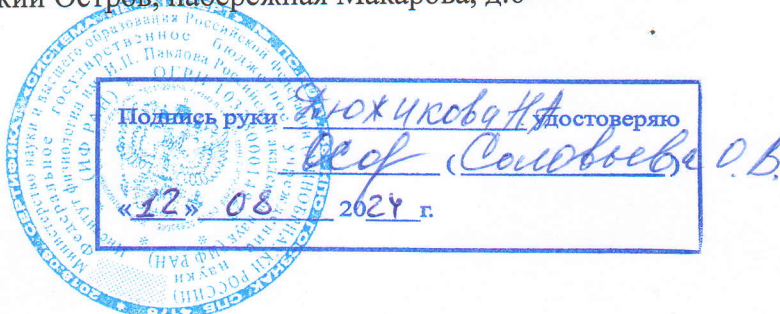 кий Остров, набережная Макарова, д.6
Подпись руки Дюжикова Н.А. удостоверяю
(Соловьева О.В.)
«12» 08 2024 г.
Министерство науки и высшего образования Российской
Федеральное государственное бюджетное учреждение
науки
Институт физиологии им. И.П. Павлова Российской
(ИФ РАН)
ОГРН